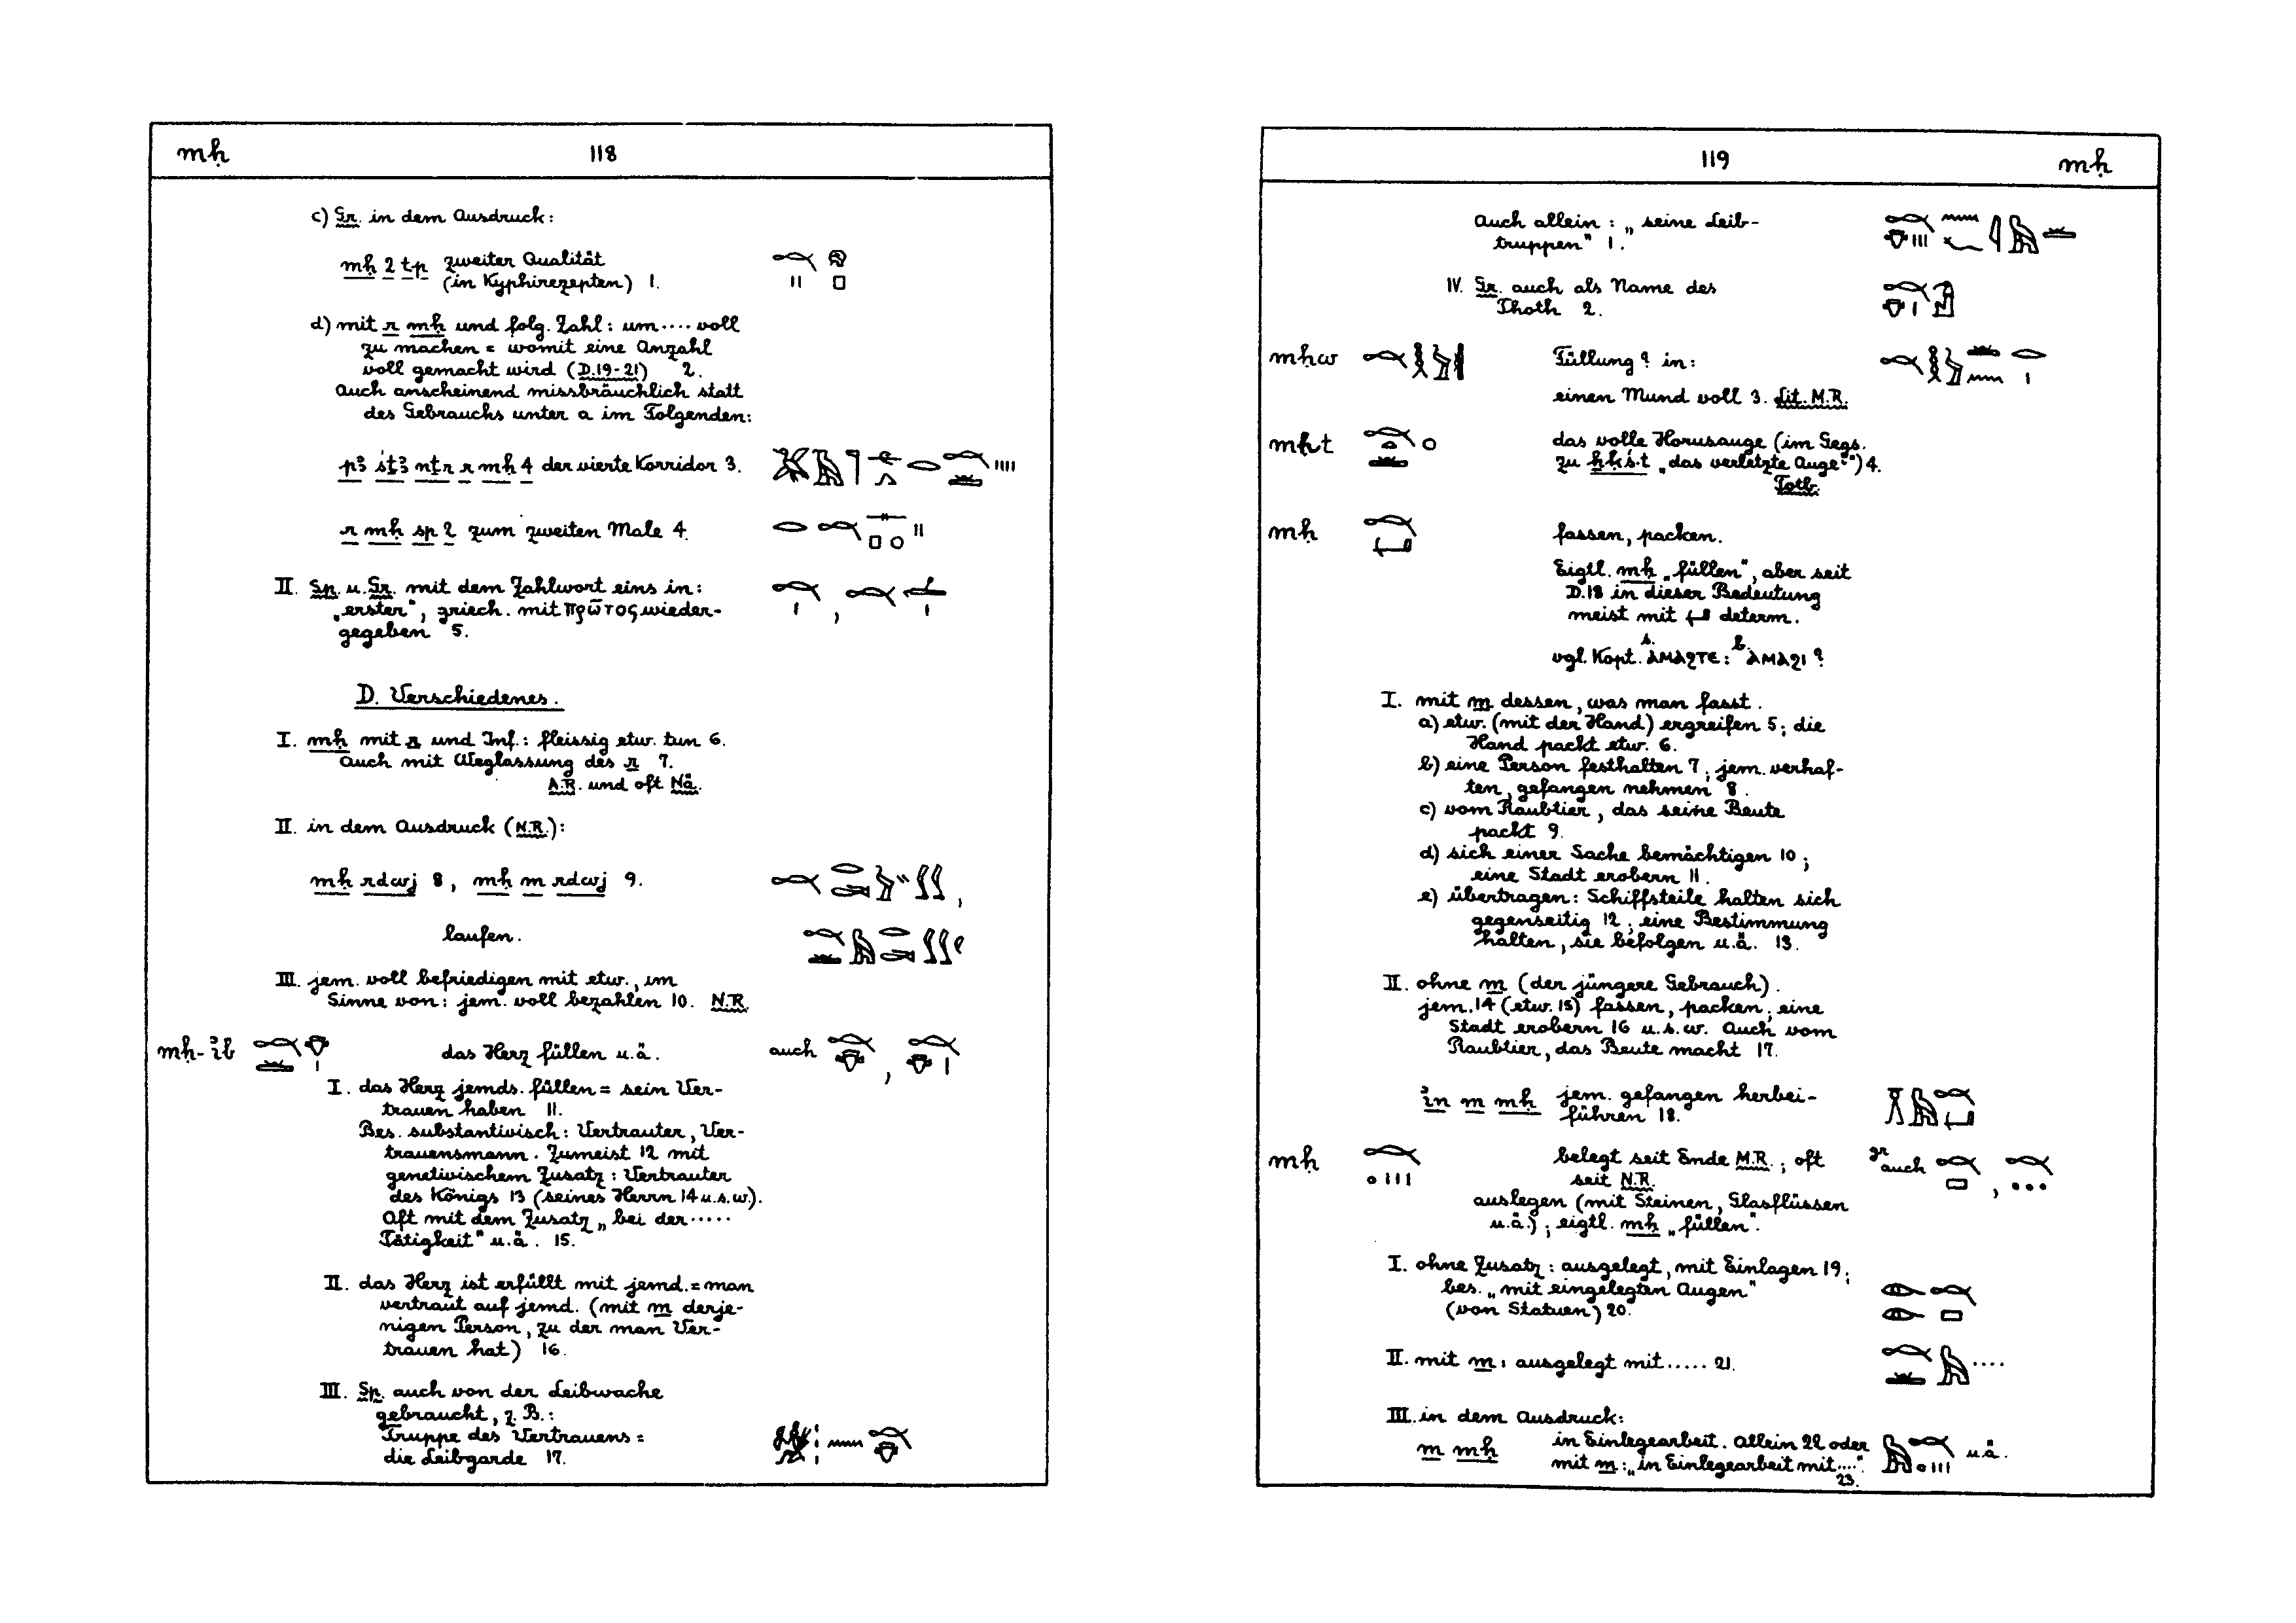 mḥ 118
c) Gr. in dem Ausdruck:
mḥ 2 tp zweiter Qualität
(in Kyphirezepten) 1.
d) mit r mḥ und folg. Zahl: um .... voll
zu machen = womit eine Anzahl
voll gemacht wird (D.19-21) 2.
Auch anscheinend missbräuchlich statt
des Gebrauchs unter a im Folgenden:
pꜣ śṯꜣ nṯr r mḥ 4 der vierte Korridor 3.
r mḥ sp 2 zum zweiten Male 4.
II. Sp. u. Gr. mit dem Zahlwort eins in:
„erster", griech. mit πρῶτος wieder-
gegeben 5.
D. Verschiedenes.
I. mḥ mit r und Inf.: fleissig etw. tun 6.
Auch mit Weglassung des r 7.
A.R. und oft Nä.
II. in dem Ausdruck (N.R.):
mḥ rdwj 8, mḥ m rdwj 9.
laufen.
III. jem. voll befriedigen mit etw., im
Sinne von: jem. voll bezahlen 10. N.R.
mḥ-ỉb das Herz füllen u.ä. auch
I. das Herz jemds. füllen = sein Ver-
trauen haben 11.
Bes. substantivisch: Vertrauter, Ver-
trauensmann. Zumeist 12 mit
genetivischem Zusatz: Vertrauter
des Königs 13 (seines Herrn 14 u.s.w.).
Oft mit dem Zusatz „bei der .....
Tätigkeit" u.ä. 15.
II. das Herz ist erfüllt mit jemd. = man
vertraut auf jemd. (mit m derje-
nigen Person, zu der man Ver-
trauen hat) 16.
III. Sp. auch von der Leibwache
gebraucht, z.B.:
Truppe des Vertrauens =
die Leibgarde 17.
119 mḥ
Auch allein: „seine Leib-
truppen" 1.
IV. Gr. auch als Name des
Thoth 2.
mḥw Füllung? in:
einen Mund voll 3. Lit. M.R.
mḥt das volle Horusauge (im Gegs.
zu ḥḳś.t „das verletzte Auge") 4.
Totb.
mḥ fassen, packen.
Eigtl. mḥ „füllen", aber seit
D.18 in dieser Bedeutung
meist mit determ.
vgl. Kopt. s. ⲁⲙⲁϩⲧⲉ: b. ⲁⲙⲁϩⲓ?
I. mit m dessen, was man fasst.
a) etw. (mit der Hand) ergreifen 5; die
Hand packt etw. 6.
b) eine Person festhalten 7; jem. verhaf-
ten, gefangen nehmen 8.
c) vom Raubtier, das seine Beute
packt 9.
d) sich einer Sache bemächtigen 10;
eine Stadt erobern 11.
e) übertragen: Schiffsteile halten sich
gegenseitig 12; eine Bestimmung
halten, sie befolgen u.ä. 13.
II. ohne m (der jüngere Gebrauch).
jem. 14 (etw. 15) fassen, packen; eine
Stadt erobern 16 u.s.w. Auch vom
Raubtier, das Beute macht 17.
ỉn m mḥ jem. gefangen herbei-
führen 18.
mḥ belegt seit Ende M.R.; oft gr. auch
seit N.R.
auslegen (mit Steinen, Glasflüssen
u.ä.); eigtl. mḥ „füllen".
I. ohne Zusatz: ausgelegt, mit Einlagen 19;
bes. „mit eingelegten Augen"
(von Statuen) 20.
II. mit m: ausgelegt mit ..... 21.
III. in dem Ausdruck:
m mḥ in Einlegearbeit. Allein 22 oder u.ä.
mit m: „in Einlegearbeit mit ....".
23.